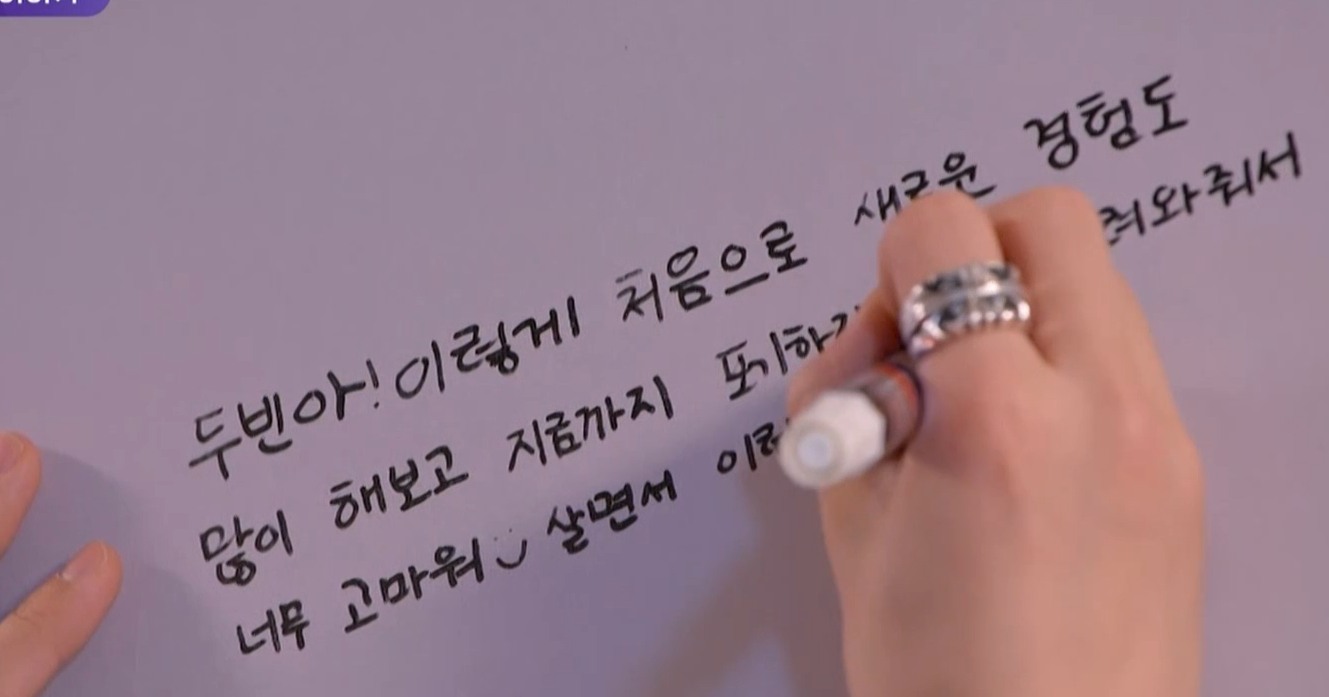 두빈아! 이렇게 처음으로 새로운 경험도
많이 해보고 지금까지 포기하 려와줘서
너무 고마워 살면서